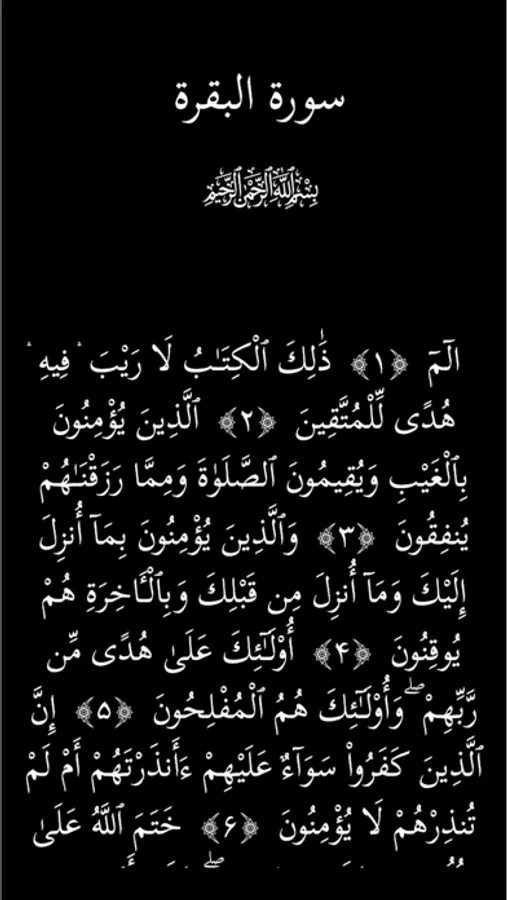 سورة البقرة
بِسْمِ ٱللَّهِ ٱلرَّحْمَٰنِ ٱلرَّحِيمِ
الٓمٓ ﴿١﴾ ذَٰلِكَ ٱلْكِتَٰبُ لَا رَيْبَ ۛ فِيهِ ۛ
هُدًى لِّلْمُتَّقِينَ ﴿٢﴾ ٱلَّذِينَ يُؤْمِنُونَ
بِٱلْغَيْبِ وَيُقِيمُونَ ٱلصَّلَوٰةَ وَمِمَّا رَزَقْنَٰهُمْ
يُنفِقُونَ ﴿٣﴾ وَٱلَّذِينَ يُؤْمِنُونَ بِمَآ أُنزِلَ
إِلَيْكَ وَمَآ أُنزِلَ مِن قَبْلِكَ وَبِٱلْـَٔاخِرَةِ هُمْ
يُوقِنُونَ ﴿۴﴾ أُو۟لَٰٓئِكَ عَلَىٰ هُدًى مِّن
رَّبِّهِمْ ۖ وَأُو۟لَٰٓئِكَ هُمُ ٱلْمُفْلِحُونَ ﴿۵﴾ إِنَّ
ٱلَّذِينَ كَفَرُوا۟ سَوَآءٌ عَلَيْهِمْ ءَأَنذَرْتَهُمْ أَمْ لَمْ
تُنذِرْهُمْ لَا يُؤْمِنُونَ ﴿۶﴾ خَتَمَ ٱللَّهُ عَلَىٰ